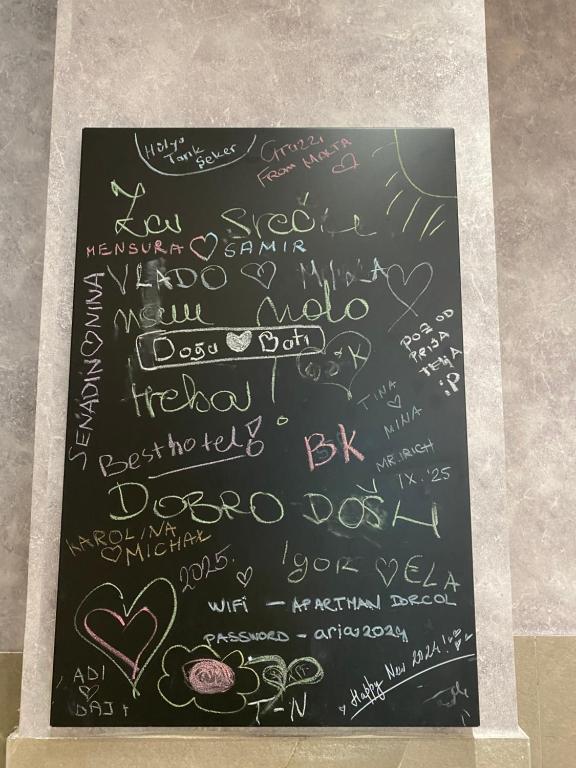 Hülya
Tarık
Şeker
Grazzi
FROM MALTA
Za sreću
MENSURA SAMIR
VLADO
nam malo
Doğa Batı
SENADIN NINA
POZ OD
PRIJA
TELJA
:P
K
treba!
TINA
MINA
Best hotel!
BK
MR.IRICH
IX.'25
DOBRO DOŠLI
KAROLINA
MICHAŁ
2025.
IGOR ELA
WIFI - APARTMAN DORCOL
PASSWORD - aria2024
ADI
DAJ
T-N
Happy New 2024!